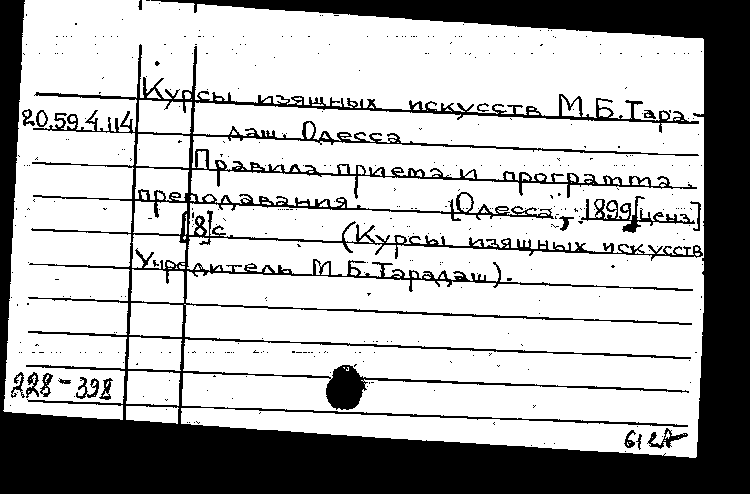 Курсы изящных искусств М.Б.Тара-
20.59.4.114 даш. Одесса.
Правила приема и программа.
преподавания. [Одесса, 1899[ценз.]
[8]с. (Курсы изящных искусств
Учредитель М.Б.Тарадаш).
228-398